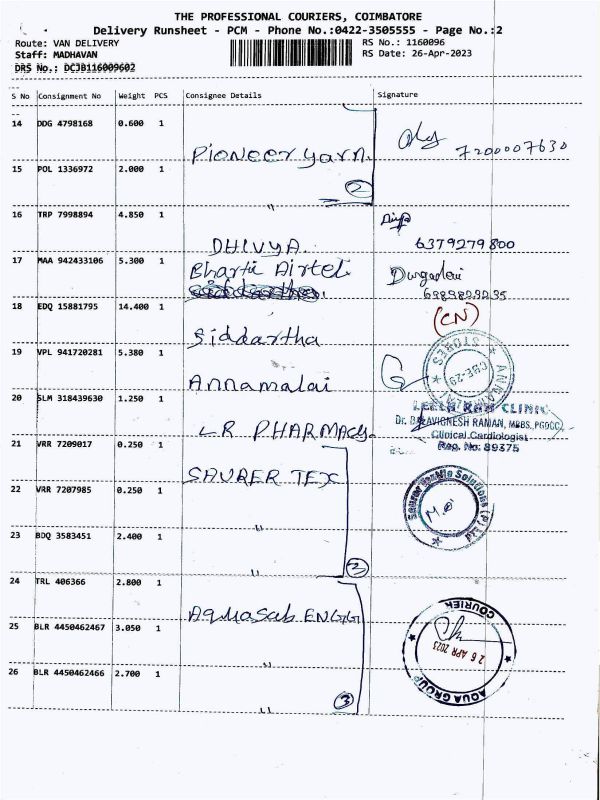 THE PROFESSIONAL COURIERS, COIMBATORE
Delivery Runsheet - PCM - Phone No.:0422-3505555 - Page No.:2
Route: VAN DELIVERY
RS No.: 1160096
Staff: MADHAVAN
RS Date: 26-Apr-2023
DRS No.: DCJB116009602
S No Consignment No Weight PCS Consignee Details Signature
14 DDG 4798168 0.600 1
7200007630
Pioneer yarn.
15 POL 1336972 2.000 1
2
"
16 TRP 7998894 4.850 1
DHIVYA.
6379279800
17 MAA 942433106 5.300 1
Bharti Airtel
18 EDQ 15881795 14.400 1
(CN)
Siddartha
19 VPL 941720281 5.380 1
STORES ★ ANNAMALAI ★
CBE-29
Annamalai
20 SLM 318439630 1.250 1
CLINIC
VIGNESH RAMAN, MBBS, PGDCC
Clinical Cardiologist
Reg. No: 89375
LR PHARMACY.
21 VRR 7209017 0.250 1
SAURER TEX
22 VRR 7207985 0.250 1
Saurer Textile Solutions (P) Ltd
"
23 BDQ 3583451 2.400 1
"
2
24 TRL 406366 2.800 1
Aquasub ENGG
COURIER
26 APR 2023
AQUA GROUP
25 BLR 4450462467 3.050 1
"
26 BLR 4450462466 2.700 1
3
"